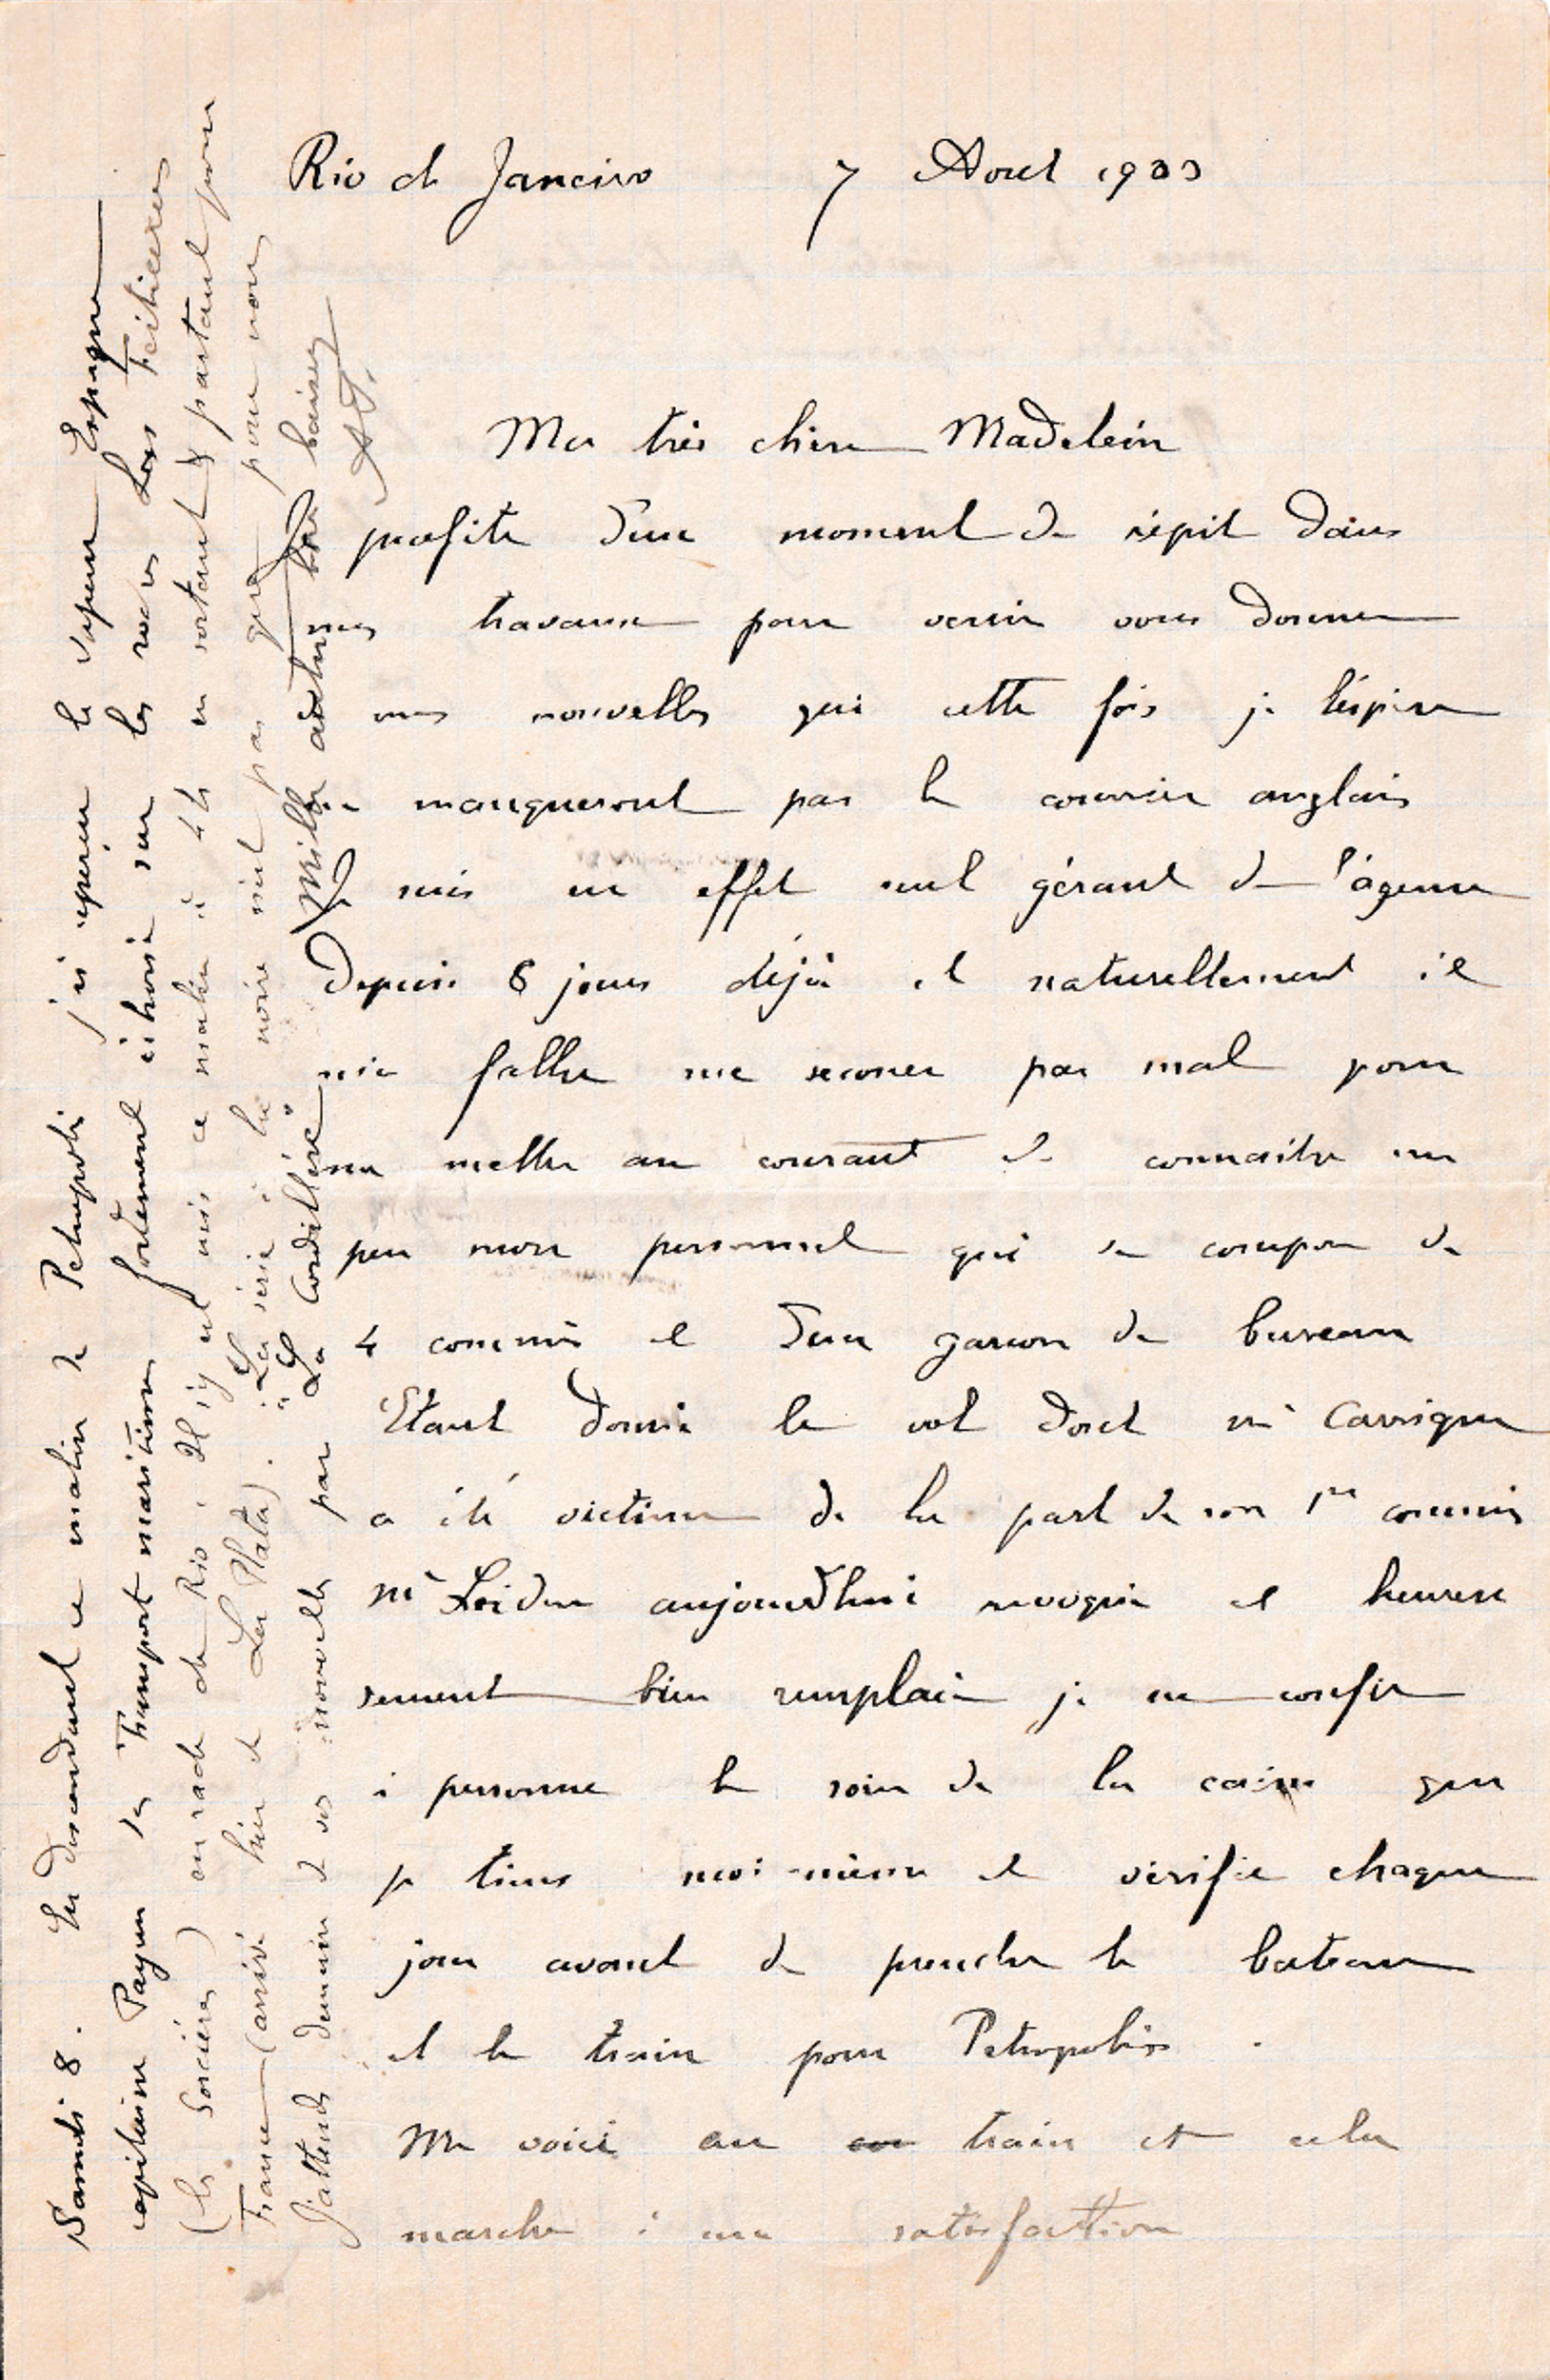 Rio de Janeiro 7 Aout 1903
Ma très chère Madeleine
Je profite d'un moment de répit dans
mes travaux pour venir vous donner
mes nouvelles qui cette fois je l'éspère
ne manqueront pas le courrier anglais
Je suis en effet seul gérant de l'agence
Depuis 6 jours déjà et naturellement il
m'a fallu me secouer pas mal pour
me mettre au courant et connaitre un
peu mon personnel qui se compose de
4 commis et d'un garcon de bureau
Etant donné le vol dont mr Carrique
a été victime de la part de son 1er commis
mr Leidu aujourd'hui revoqué et heureu
sement bien remplacé je ne confie
à personne le soin de la caisse que
je tiens moi-même et vérifie chaque
jour avant de prendre le bateau
et le train pour Petropolis.
Me voici au train et cela
marche à ma satisfaction
Samedi 8. En descendant ce matin de Petropolis j'ai aperçu le vapeur Espagne
capitaine Payen des Transports maritimes fortement échoué sur les rocs Los Feiticeros
(les Sorcières) en rade de Rio. Il s'y est mis ce matin à 4h en sortant & partant pour
France (arrivé hier de La Plata). La série à la noire n'est pas que pour nous
J'attends demain de vos nouvelles par "La Cordillère" Mille autres bons baisers